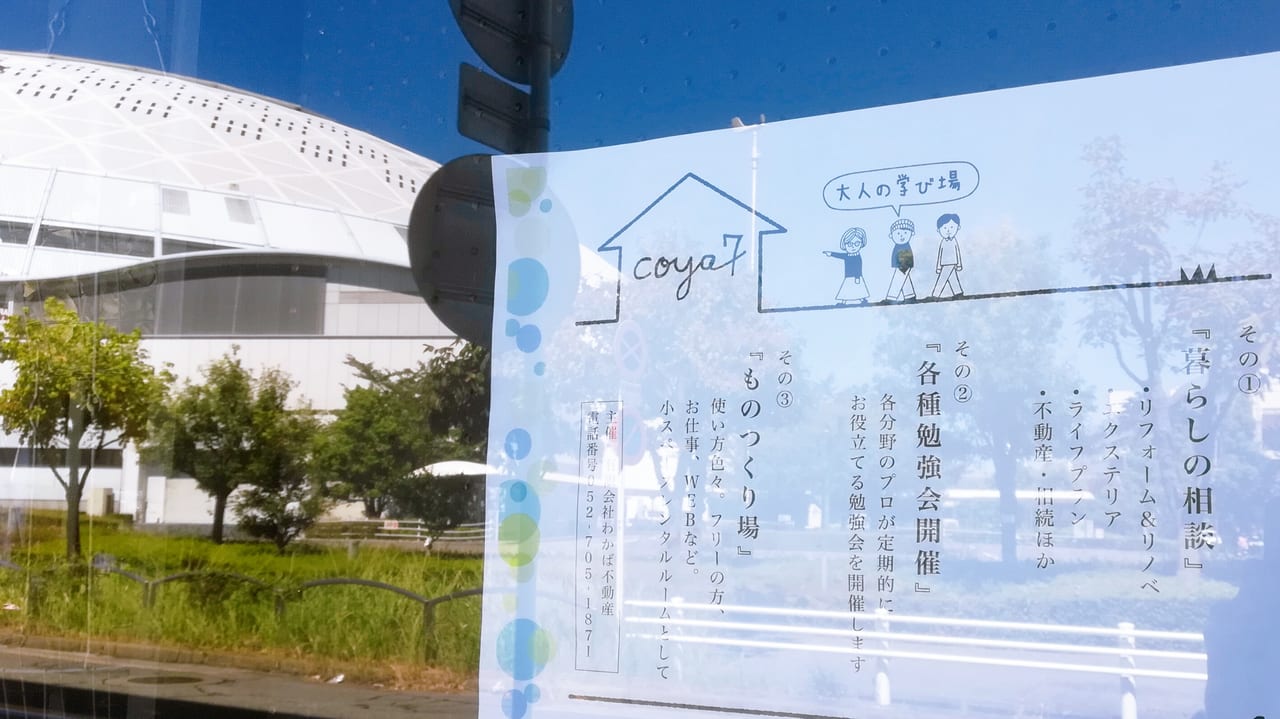 coya7
大人の学び場
その①
『暮らしの相談』
・リフォーム&リノベ
・エクステリア
・ライフプラン
・不動産・相続ほか
その②
『各種勉強会開催』
各分野のプロが定期的に
お役立てる勉強会を開催します
その③
『ものつくり場』
使い方色々。フリーの方、
お仕事、WEBなど。
小スペースレンタルルームとして
主催 会社わかば不動産
電話番号 052-705-1871